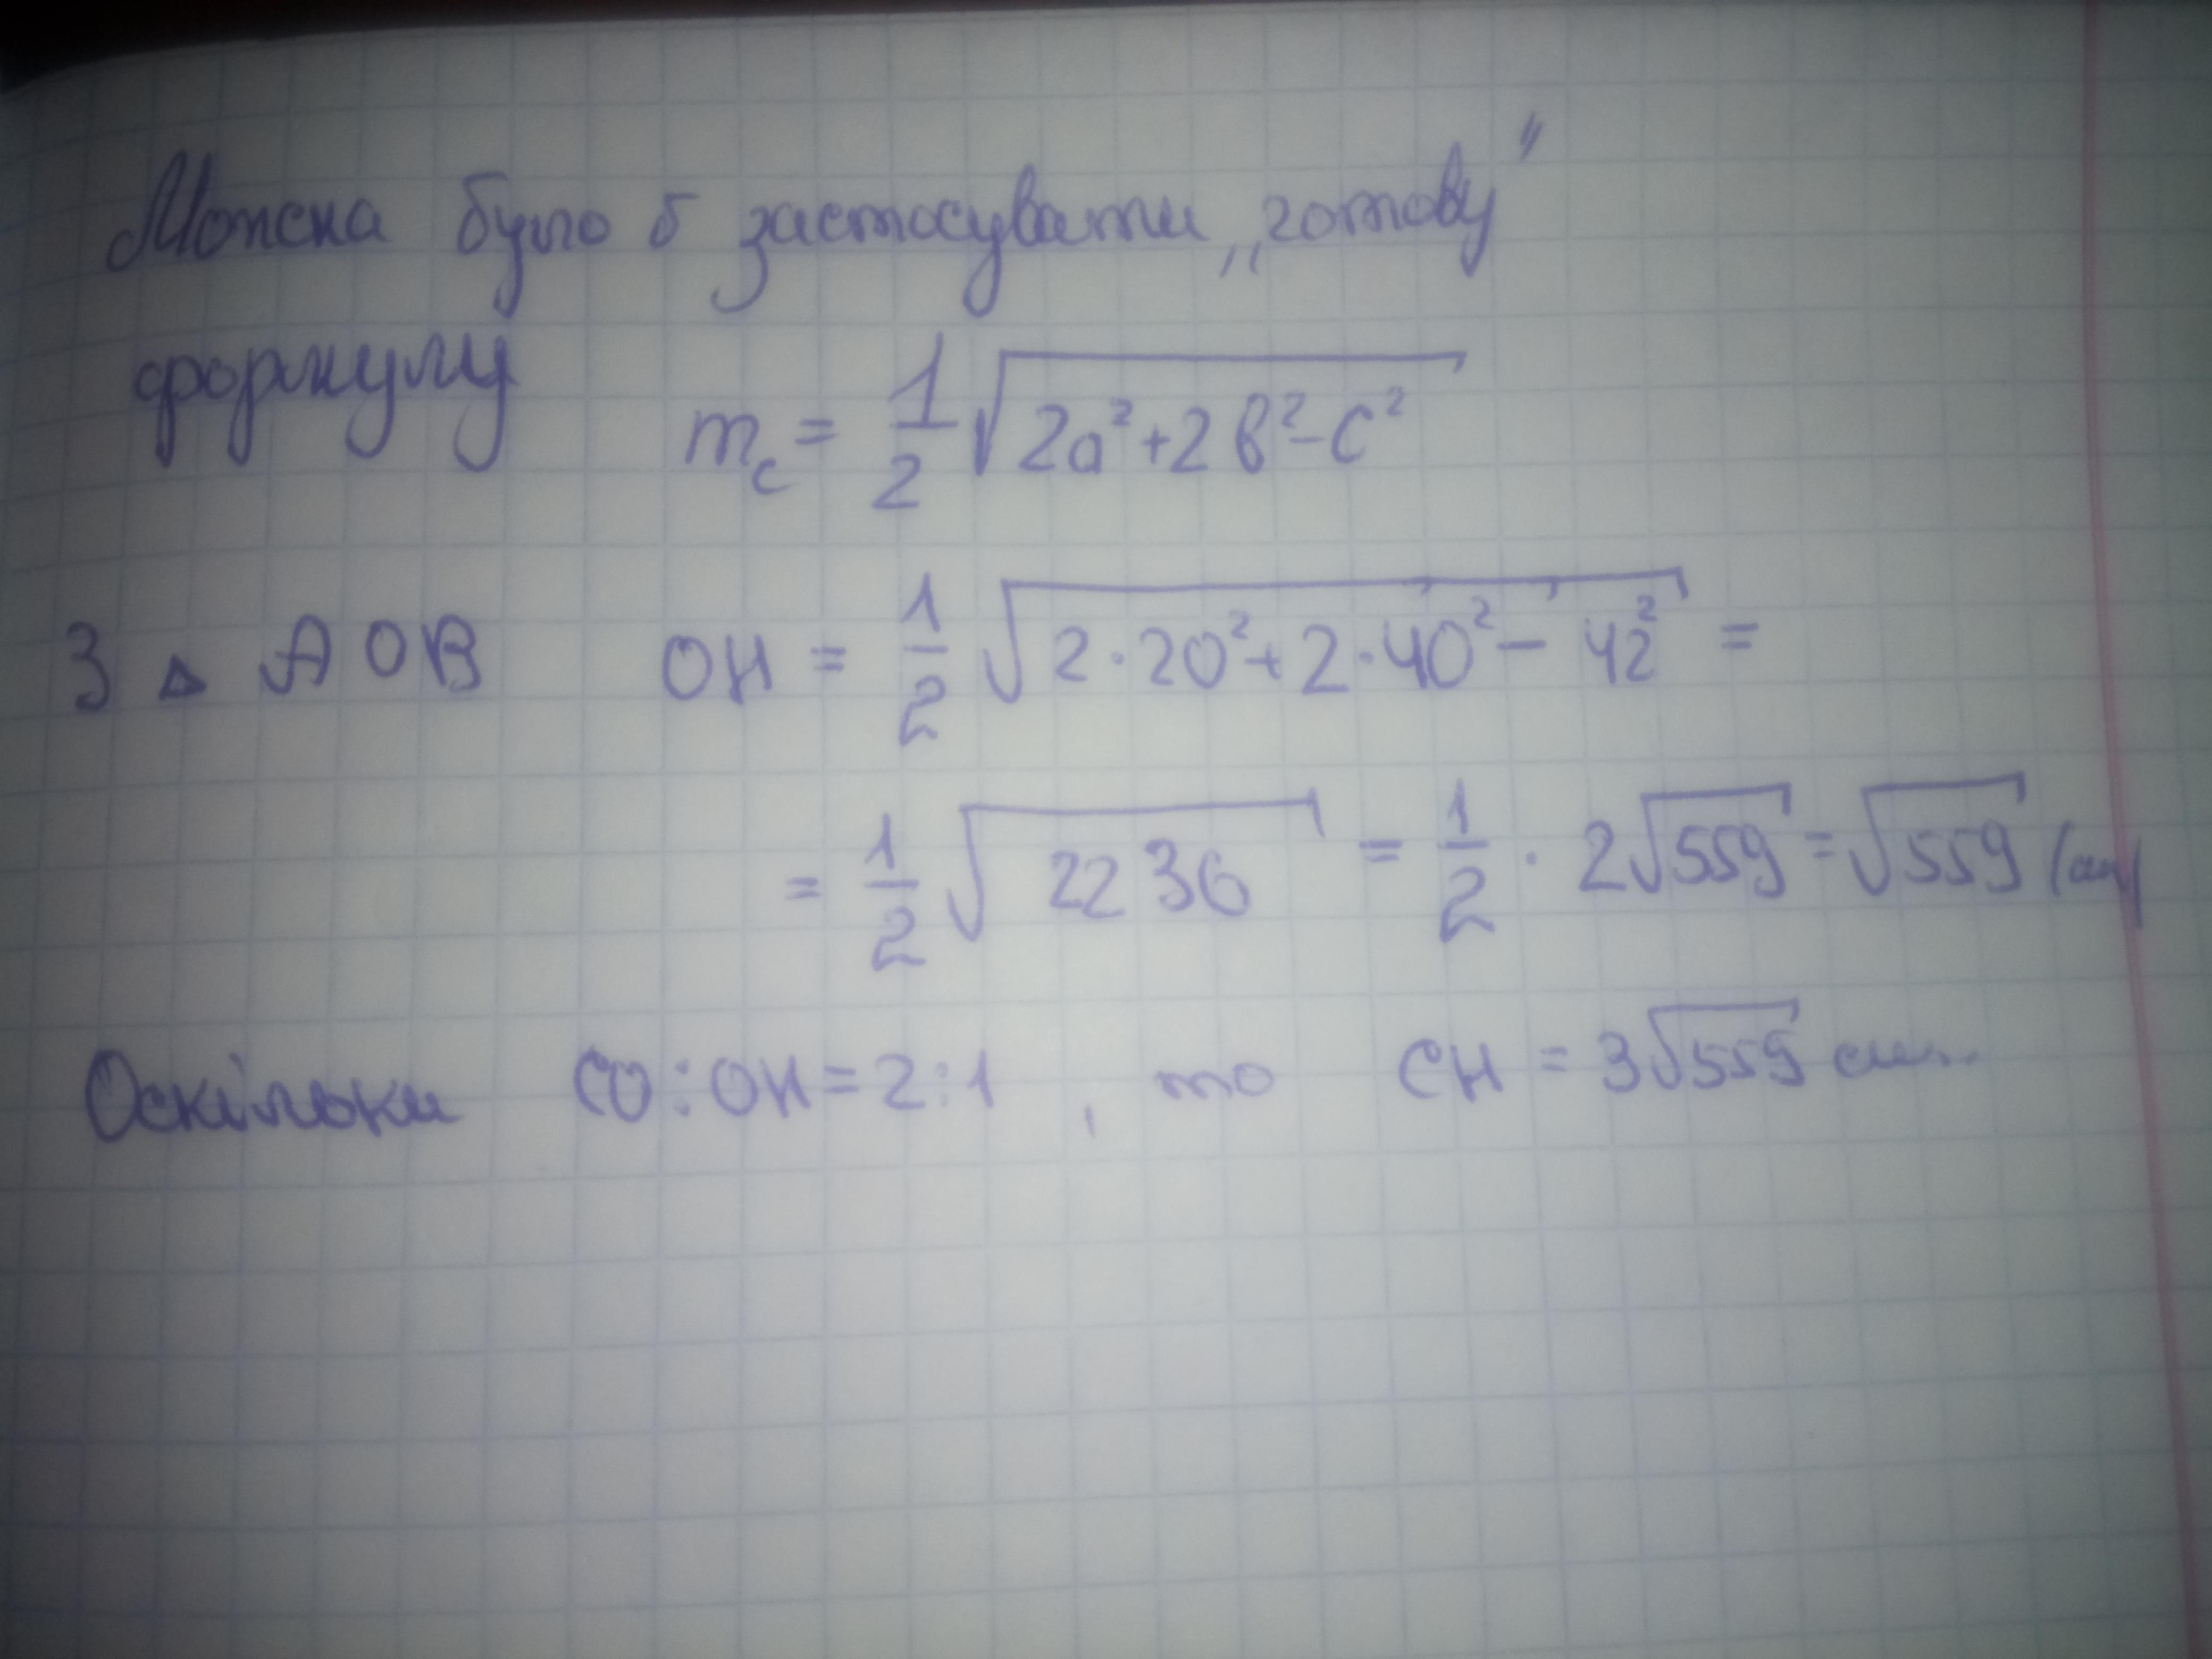 Можна було б застосувати „готову"
формулу m_c = 1/2 √(2a² + 2b² - c²)
З △ AOB OH = 1/2 √(2·20² + 2·40² - 42²) =
= 1/2 √2236 = 1/2 · 2√559 = √559 (см)
Оскільки CO:OH = 2:1, то CH = 3√559 см...